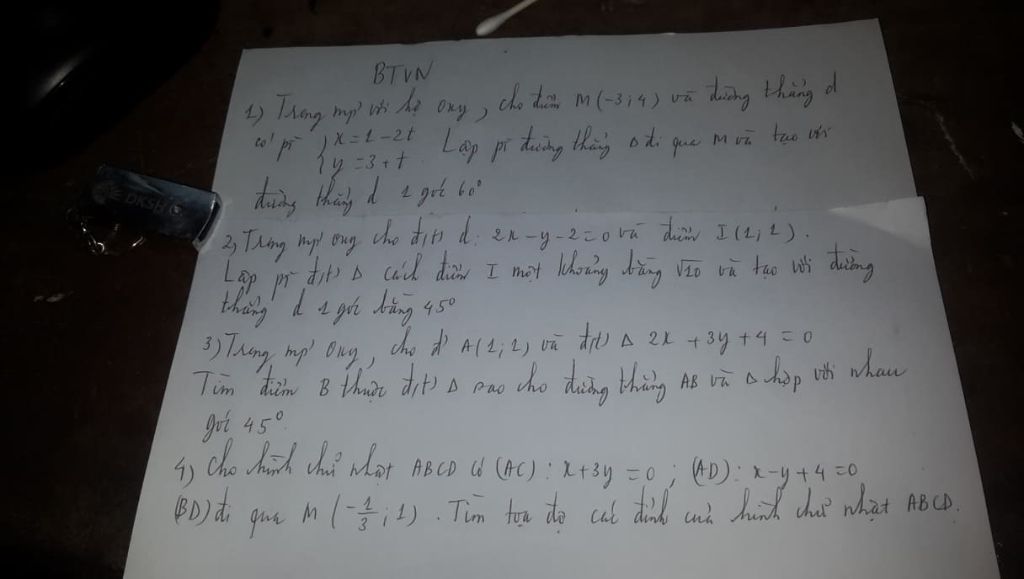 BTVN
1) Trong mp' với hệ oxy, cho điểm M(-3;4) và đường thẳng d
có pt { x=1-2t
y=3+t. Lập pt đường thẳng Δ đi qua M và tạo với
đường thẳng d 1 góc 60°
2) Trong mp' oxy cho đ/t) d: 2x-y-2=0 và điểm I(1;1).
Lập pt đ/t) Δ cách điểm I một khoảng bằng √10 và tạo với đường
thẳng d 1 góc bằng 45°
3) Trong mp' Oxy, cho đ' A(1;1) và đ/t) Δ 2x+3y+4=0
Tìm điểm B thuộc đ/t) Δ sao cho đường thẳng AB và Δ hợp với nhau
góc 45°.
4) Cho hình chữ nhật ABCD có (AC): x+3y=0; (AD): x-y+4=0
(BD) đi qua M(-1/3;1). Tìm tọa độ các đỉnh của hình chữ nhật ABCD.
DKSH